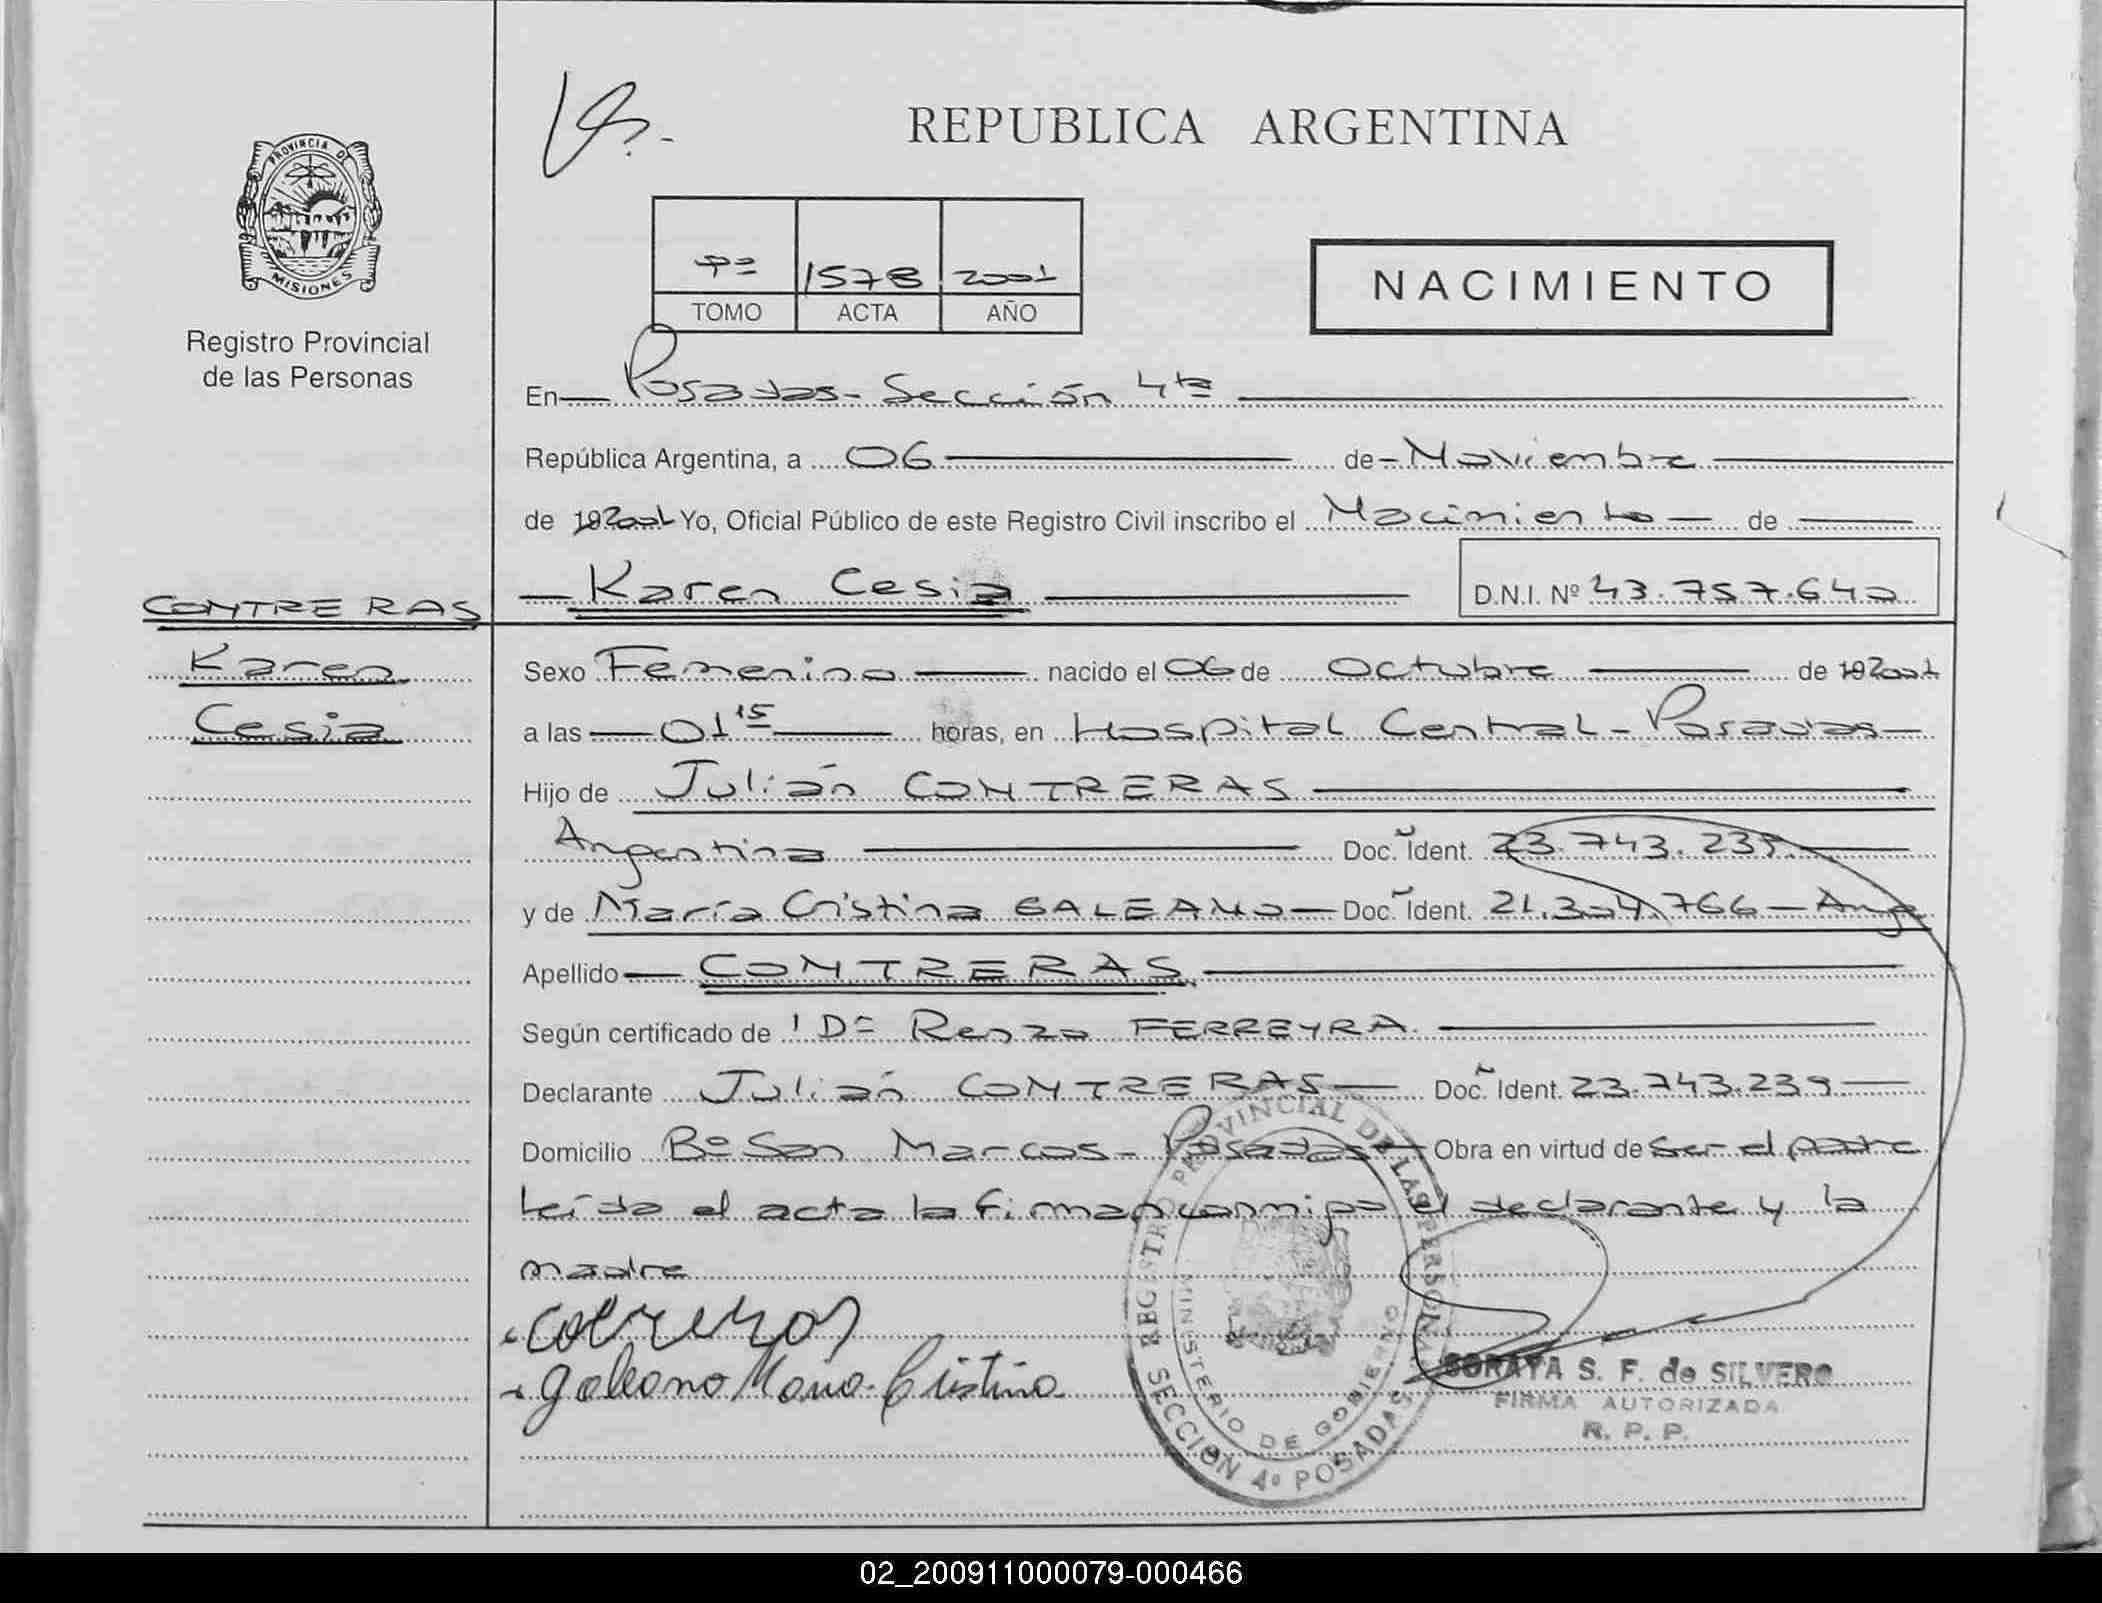 REPUBLICA ARGENTINA
PROVINCIA DE
MISIONES
Registro Provincial
de las Personas
4º 1578 2001
TOMO ACTA AÑO
NACIMIENTO
En Posadas - Sección 4ta
República Argentina, a 06 de Noviembre
de 2001 Yo, Oficial Público de este Registro Civil inscribo el Nacimiento de
Karen Cesia D.N.I. Nº 43.757.640
CONTRERAS
Karen
Cesia
Sexo Femenino nacido el 06 de Octubre de 192001
a las 01 15 horas, en Hospital Central - Posadas
Hijo de Julián CONTRERAS
Argentina Doc. Ident. 23.743.239
y de María Cristina GALEANO Doc. Ident. 21.304.766 - Arg
Apellido CONTRERAS
Según certificado de Dr Renzo FERREYRA
Declarante Julián CONTRERAS Doc. Ident. 23.743.239
Domicilio Bº San Marcos - Posadas Obra en virtud de ser el padre
Leída el acta la firman conmigo el declarante y la
madre
galeano Maria Cristina
REGISTRO PROVINCIAL DE LAS PERSONAS
MINISTERIO DE GOBIERNO
SECCION 4º POSADAS
SORAYA S. F. de SILVERO
FIRMA AUTORIZADA
R. P. P.
02_200911000079-000466